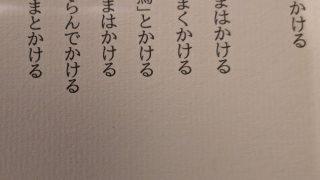 かける
まはかける
まくかける
」とかける
まはかける
らんでかける
まとかける